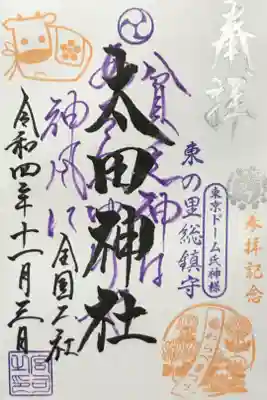 奉拝
東の里総鎮守
東京ドーム氏神様
参拝記念
太田神社
貧乏神は
神風に
全国一社
令和四年十一月三日